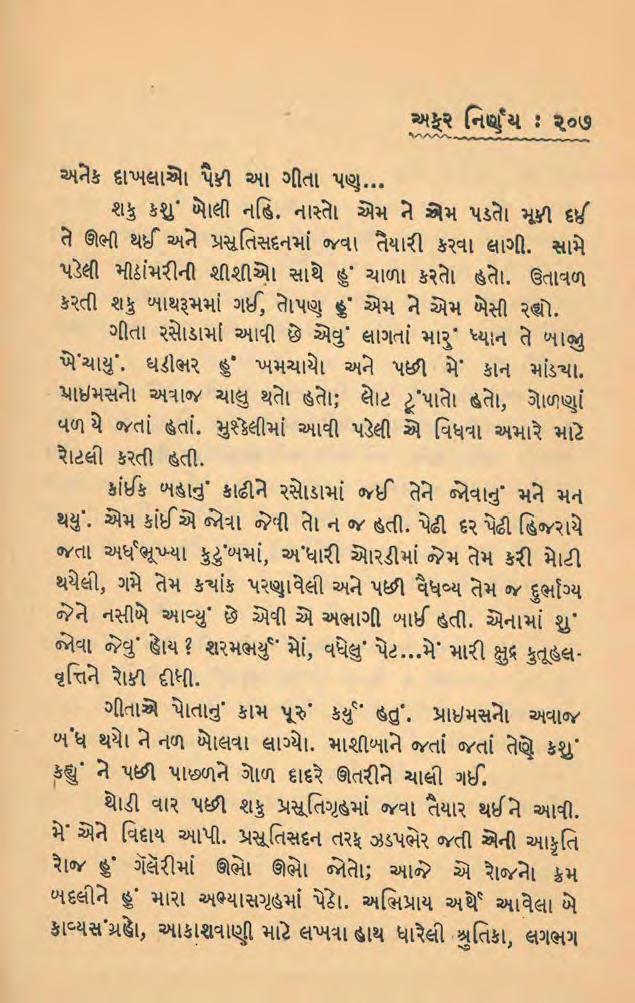 અફર નિર્ણય : ૨૦૭
અનેક દાખલાઓ પૈકી આ ગીતા પણ...
શકુ કશું બોલી નહિ. નાસ્તો એમ ને એમ પડતો મૂકી દઈ
તે ઊભી થઈ અને પ્રસૂતિસદનમાં જવા તૈયારી કરવા લાગી. સામે
પડેલી મીઠાંમરીની શીશીઓ સાથે હું ચાળા કરતો હતો. ઉતાવળ
કરતી શકુ બાથરૂમમાં ગઈ, તોપણ હું એમ ને એમ બેસી રહ્યો.
ગીતા રસોડામાં આવી છે એવું લાગતાં મારું ધ્યાન તે બાજુ
ખેંચાયું. ઘડીભર હું ખમચાયો અને પછી મેં કાન માંડ્યા.
પ્રાઇમસનો અવાજ ચાલુ થતો હતો; લોટ ટૂંપાતો હતો, ગોળણાં
વળ યે જતાં હતાં. મુશ્કેલીમાં આવી પડેલી એ વિધવા અમારે માટે
રોટલી કરતી હતી.
કાંઈક બહાનું કાઢીને રસોડામાં જઈ તેને જોવાનું મને મન
થયું. એમ કાંઈ એ જોવા જેવી તો ન જ હતી. પેઢી દર પેઢી હિજરાયે
જતા અર્ધભૂખ્યા કુટુંબમાં, અંધારી ઓરડીમાં જેમ તેમ કરી મોટી
થયેલી, ગમે તેમ ક્યાંક પરણાવેલી અને પછી વૈધવ્ય તેમ જ દુર્ભાગ્ય
જેને નસીબે આવ્યું છે એવી એ અભાગી બાઈ હતી. એનામાં શું
જોવા જેવું હોય? શરમભર્યું મોં, વધેલું પેટ...મેં મારી ક્ષુદ્ર કુતૂહલ-
વૃત્તિને રોકી દીધી.
ગીતાએ પોતાનું કામ પૂરું કર્યું હતું. પ્રાઇમસનો અવાજ
બંધ થયો ને નળ બોલવા લાગ્યો. માશીબાને જતાં જતાં તેણે કશું
કહ્યું ને પછી પાછળને ગોળ દાદરે ઊતરીને ચાલી ગઈ.
થોડી વાર પછી શકુ પ્રસૂતિગૃહમાં જવા તૈયાર થઈને આવી.
મેં એને વિદાય આપી. પ્રસૂતિસદન તરફ ઝડપભેર જતી એની આકૃતિ
રોજ હું ગૅલૅરીમાં ઊભો ઊભો જોતો; આજે એ રોજનો ક્રમ
બદલીને હું મારા અભ્યાસગૃહમાં પેઠો. અભિપ્રાય અર્થે આવેલા બે
કાવ્યસંગ્રહો, આકાશવાણી માટે લખવા હાથ ધારેલી શ્રુતિકા, લગભગ